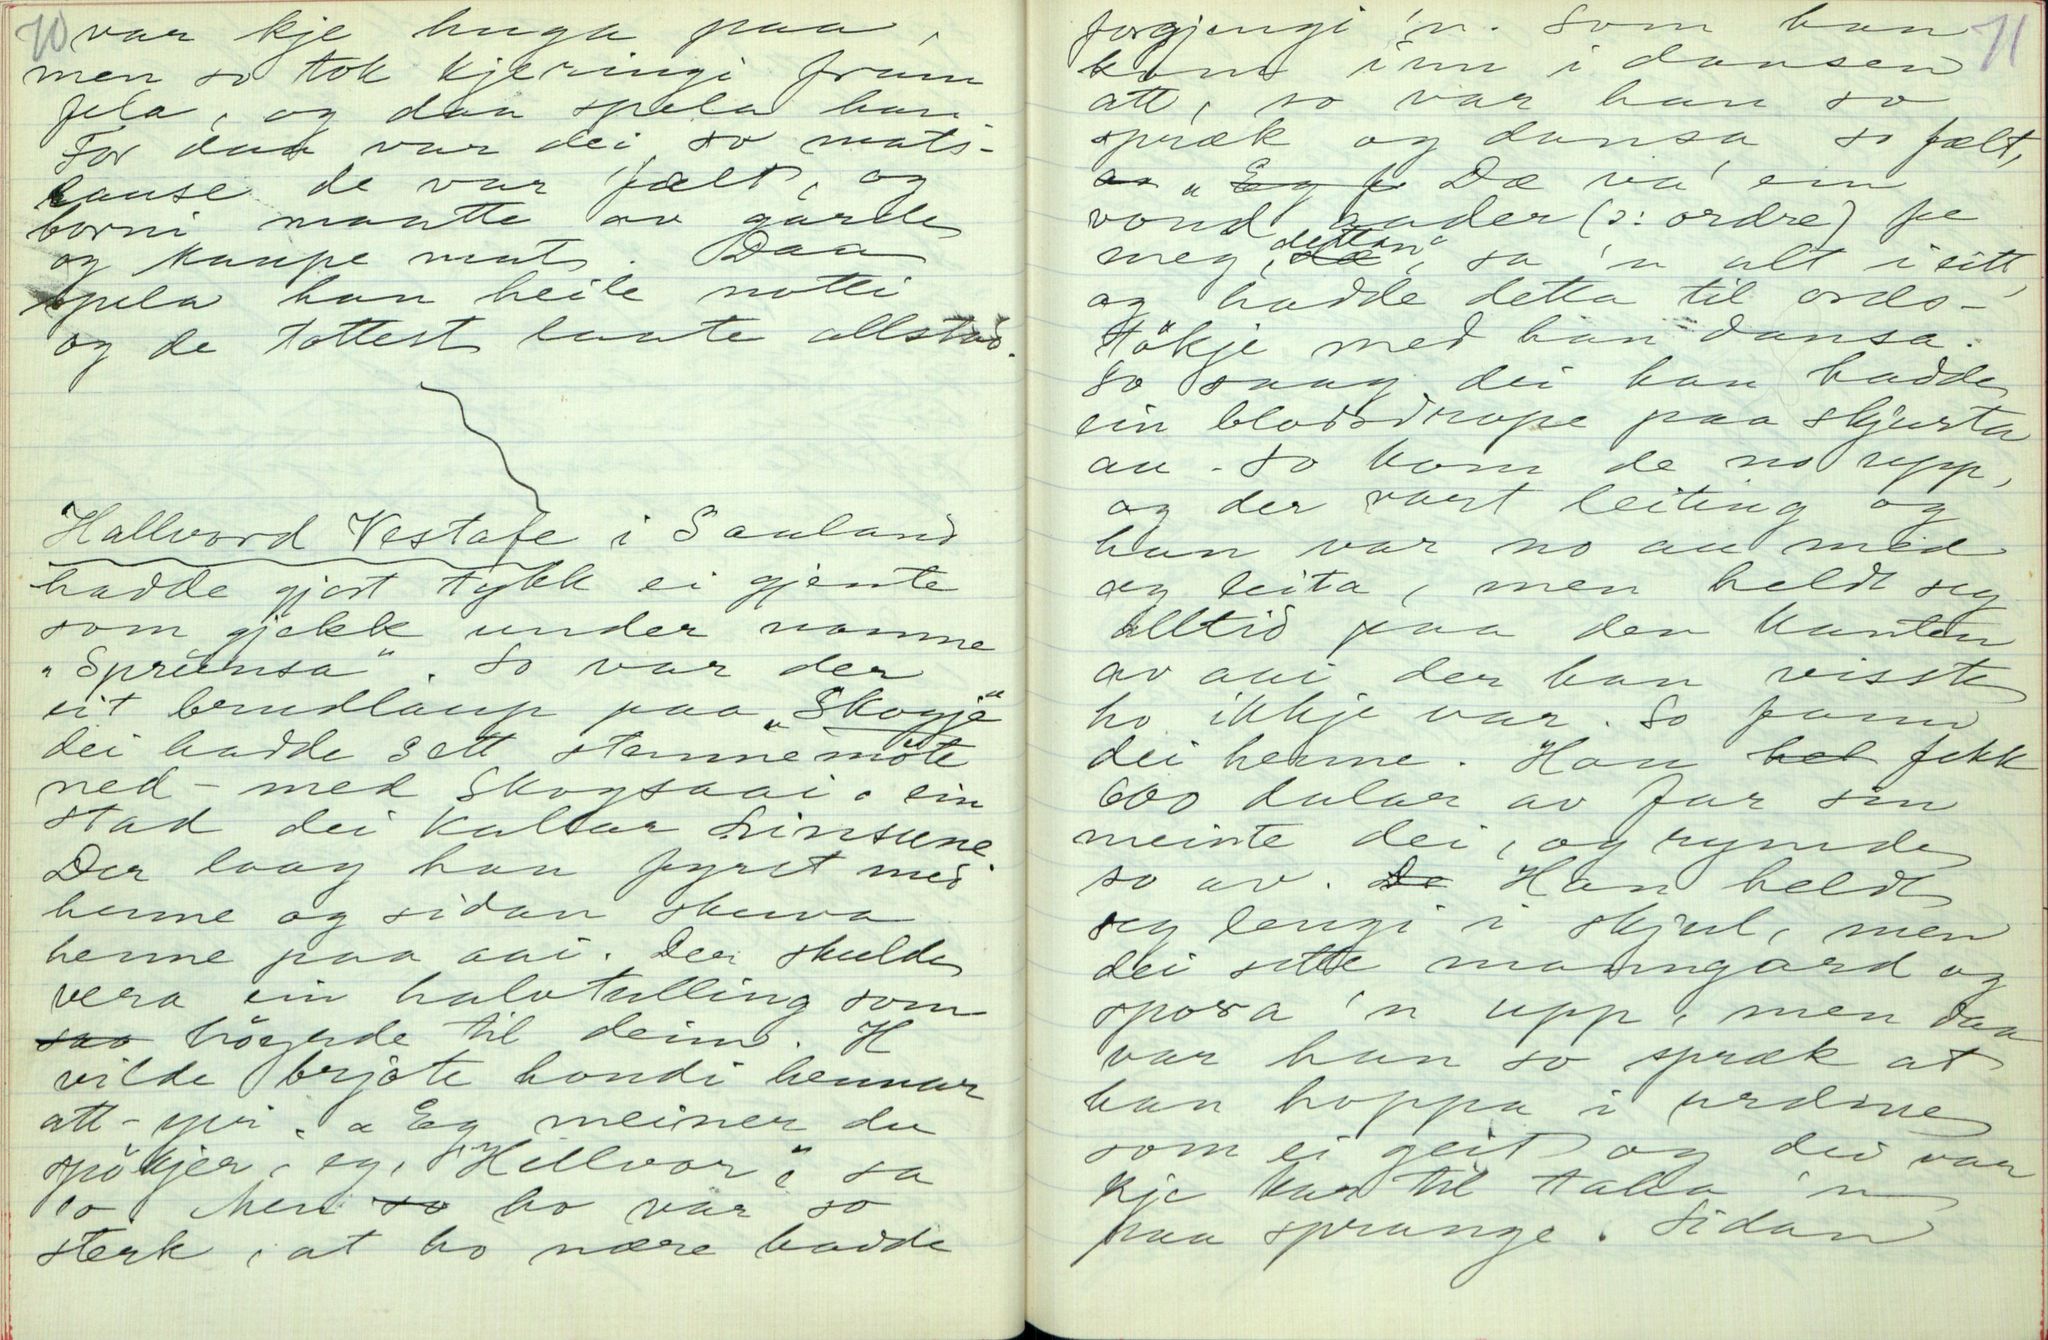 70 var kje huga paa,
men so tok kjeringi fram
fela, og daa spela han.
For daa var dei so mats-
lause de var fælt, og
borni maatte av garde
og kaupe mat. Daa
spela han heile notti
og de tottest laate allstad.
Hallvord Vestafe i Sauland
hadde gjort tykk ei gjente
som gjekk under namne
"Spriinsa". So var der
eit brudlaup paa "Skogje"
dei hadde sett stemnemöte
ned-med Skogsaai, ein
stad dei kallar Linsune.
Der laag han fyrst med
henne og sidan skuva
henne paa aai. Der skulde
vera ein halvtulling som
saa höyrde til deim. H
vilde brjote hondi hennar
att-yvi. "Eg meiner du
spökjer, eg, Hellvor", sa
ho. Men so ho var so
sterk, at ho nære hadde
71
forgjengi 'n. Som han
kom inn i dansen
att, so var han so
spræk og dansa so fælt,
"Eg f Dæ va' ein
vond aader (ɔ: ordre) fe
meg, detta", sa 'n alt i eitt,
og hadde detta til ords-
tökje med han dansa.
So saag dei han hadde
ein blodsdrope paa skjurta
au. So kom de no upp,
og der vart leiting og
han var no au med
og leita, men heldt seg
alltid paa den kanten
av aai der han visste
ho ikkje var. So fann
dei henne. Han hel fekk
600 dalar av far sin
meinte dei, og rymde
so av. De Han heldt
seg lengi i skjul, men
dei sette manngard og
spora 'n upp, men daa
var han so spræk at
han hoppa i urdine
som ei geit og dei var
kje kar til taka 'n
paa sprange. Sidan